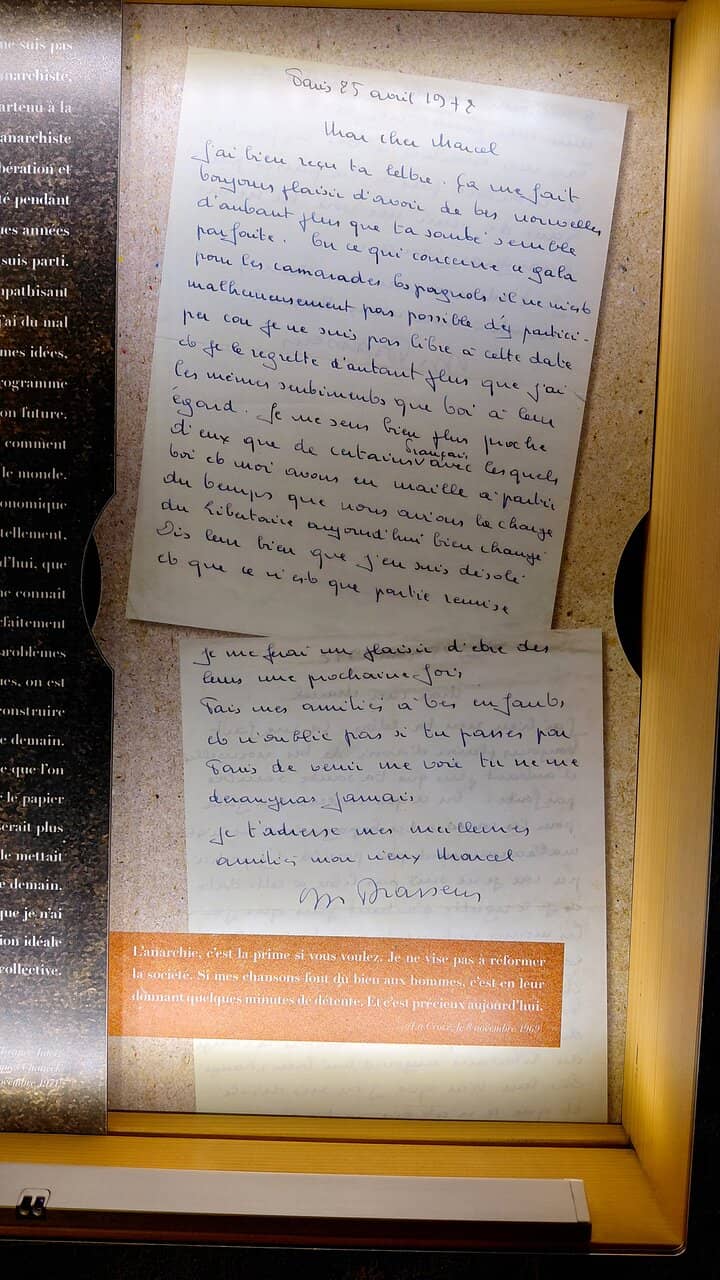 ne suis pas
narchiste,
artenu à la
anarchiste
bération et
té pendant
ues années
suis parti.
mpathisant
j'ai du mal
mes idées,
rogramme
on future.
comment
le monde.
onomique
tellement,
d'hui, que
ne connait
faitement
problèmes
ues, on est
construire
e demain.
e que l'on
le papier
serait plus
le mettait
e demain,
que je n'ai
ion idéale
collective.
novembre 1971
Paris 25 avril 1972
Mon cher Marcel
J'ai bien reçu ta lettre. Ça me fait
toujours plaisir d'avoir de tes nouvelles
d'autant plus que ta santé semble
parfaite. En ce qui concerne ce gala
pour les camarades Espagnols il ne m'est
malheureusement pas possible d'y partici-
per car je ne suis pas libre à cette date
et je le regrette d'autant plus que j'ai
les mêmes sentiments que toi à leur
égard. Je me sens bien plus proche
d'eux que de certains français avec lesquels
toi et moi avons eu maille à partir
du temps que nous avions la charge
du Libertaire aujourd'hui bien changé
Dis leur bien que j'en suis désolé
et que ce n'est que partie remise
je me ferai un plaisir d'etre des
leurs une prochaine fois.
Fais mes amitiés à tes enfants
et n'oublie pas si tu passes par
Paris de venir me voir tu ne me
derangeras jamais
je t'adresse mes meilleures
amitiés mon vieux Marcel
Brassens
L'anarchie, c'est la prime si vous voulez. Je ne vise pas à réformer
la société. Si mes chansons font du bien aux hommes, c'est en leur
donnant quelques minutes de détente. Et c'est précieux aujourd'hui.
La Croix, le 8 novembre 1969